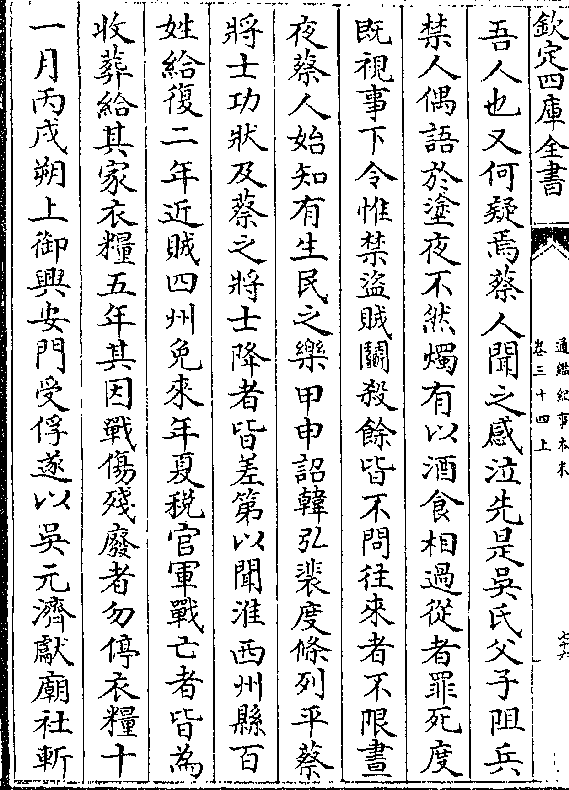 欽定四庫全書
通鑑紀事本末
卷三十四上
吾人也又何疑焉蔡人聞之感泣先是吳氏父子阻兵
禁人偶語於塗夜不然燭有以酒食相過從者罪死度
既視事下令惟禁盜賊鬭殺餘皆不問往來者不限晝
夜蔡人始知有生民之樂甲申詔韓弘裴度條列平蔡
將士功狀及蔡之將士降者皆差第以聞淮西州縣百
姓給復二年近賊四州免來年夏稅官軍戰亡者皆為
收葬給其家衣糧五年其因戰傷殘廢者勿停衣糧十
一月丙戌朔上御興安門受俘遂以吳元濟獻廟社斬